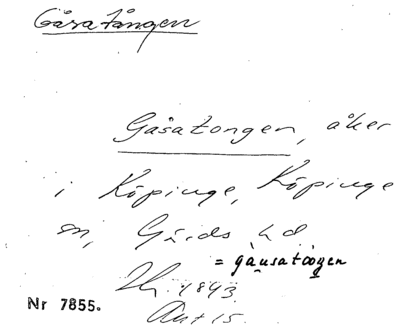 Gåsatången
Gåsatongen, åker
i Köpinge, Köpinge
sn, Gärds hd
= gàusatoogen
1843.
Akt 15.
Nr 7855.